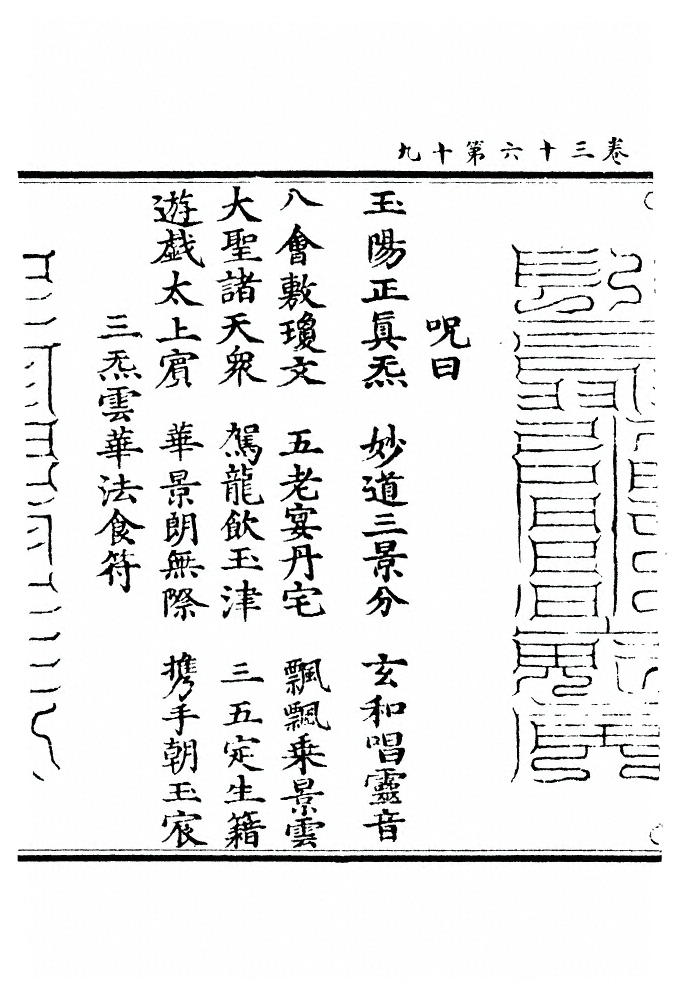 卷三十六第十九
呪曰
玉陽正眞炁　妙道三景分　玄和唱靈音
八會敷瓊文　五老宴丹宅　飄飄乗景雲
大聖諸天衆　駕龍飲玉津　三五定生籍
遊戯太上賔　華景朗無際　携手朝玉宸
三炁雲華法食符